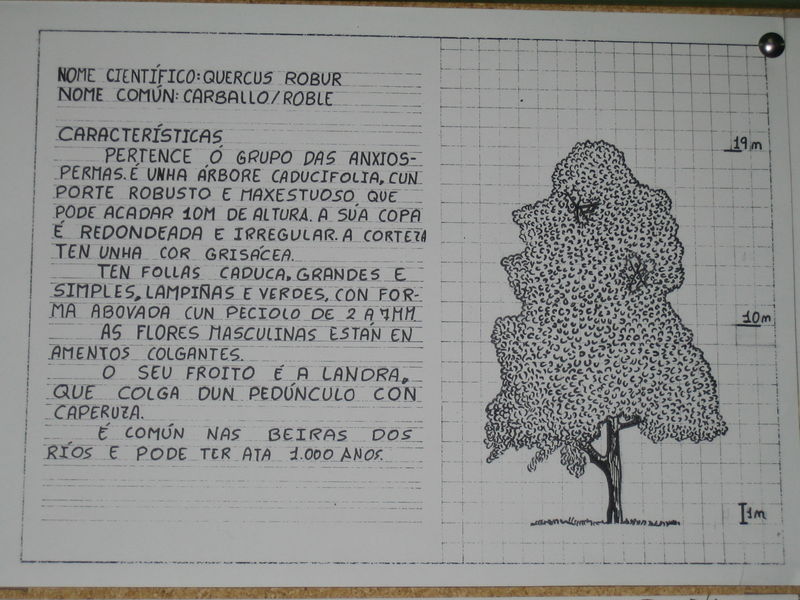 NOME CIENTÍFICO: QUERCUS ROBUR
NOME COMÚN: CARBALLO/ROBLE
CARACTERÍSTICAS
PERTENCE Ó GRUPO DAS ANXIOS-
PERMAS. É UNHA ÁRBORE CADUCIFOLIA, CUN
PORTE ROBUSTO E MAXESTUOSO, QUE
PODE ACADAR 10M DE ALTURA. A SÚA COPA
É REDONDEADA E IRREGULAR. A CORTEZA
TEN UNHA COR GRISÁCEA.
TEN FOLLAS CADUCA, GRANDES E
SIMPLES, LAMPIÑAS E VERDES, CON FOR-
MA ABOVADA CUN PECIOLO DE 2 A 7MM
AS FLORES MASCULINAS ESTÁN EN
AMENTOS COLGANTES.
O SEU FROITO É A LANDRA,
QUE COLGA DUN PEDÚNCULO CON
CAPERUZA.
É COMÚN NAS BEIRAS DOS
RÍOS E PODE TER ATA 1.000 ANOS.
19m
10m
1m